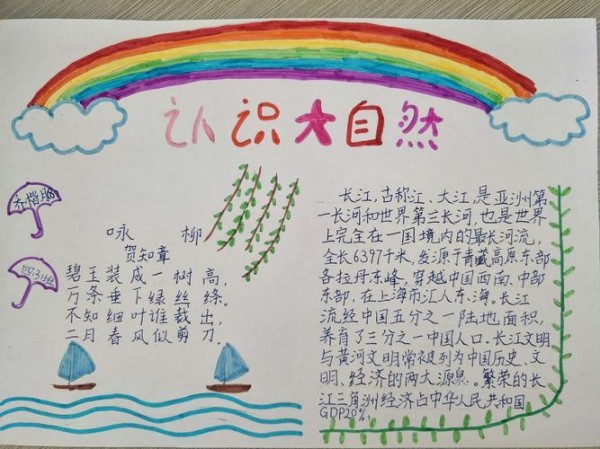 认识大自然
乔楷腾
咏 柳
贺知章
碧玉装成一树高，
万条垂下绿丝绦。
不知细叶谁裁出，
二月春风似剪刀。
长江，古称江、大江，是亚洲第
一长河和世界第三长河，也是世界
上完全在一国境内的最长河流，
全长6397千米，发源于青藏高原东部
各拉丹东峰，穿越中国西南、中部
东部，在上海市汇入东海。长江
流经中国五分之一陆地面积，
养育了三分之一中国人口。长江文明
与黄河文明常被列为中国历史、文
明、经济的两大源泉。繁荣的长
江三角洲经济占中华人民共和国
GDP20%。